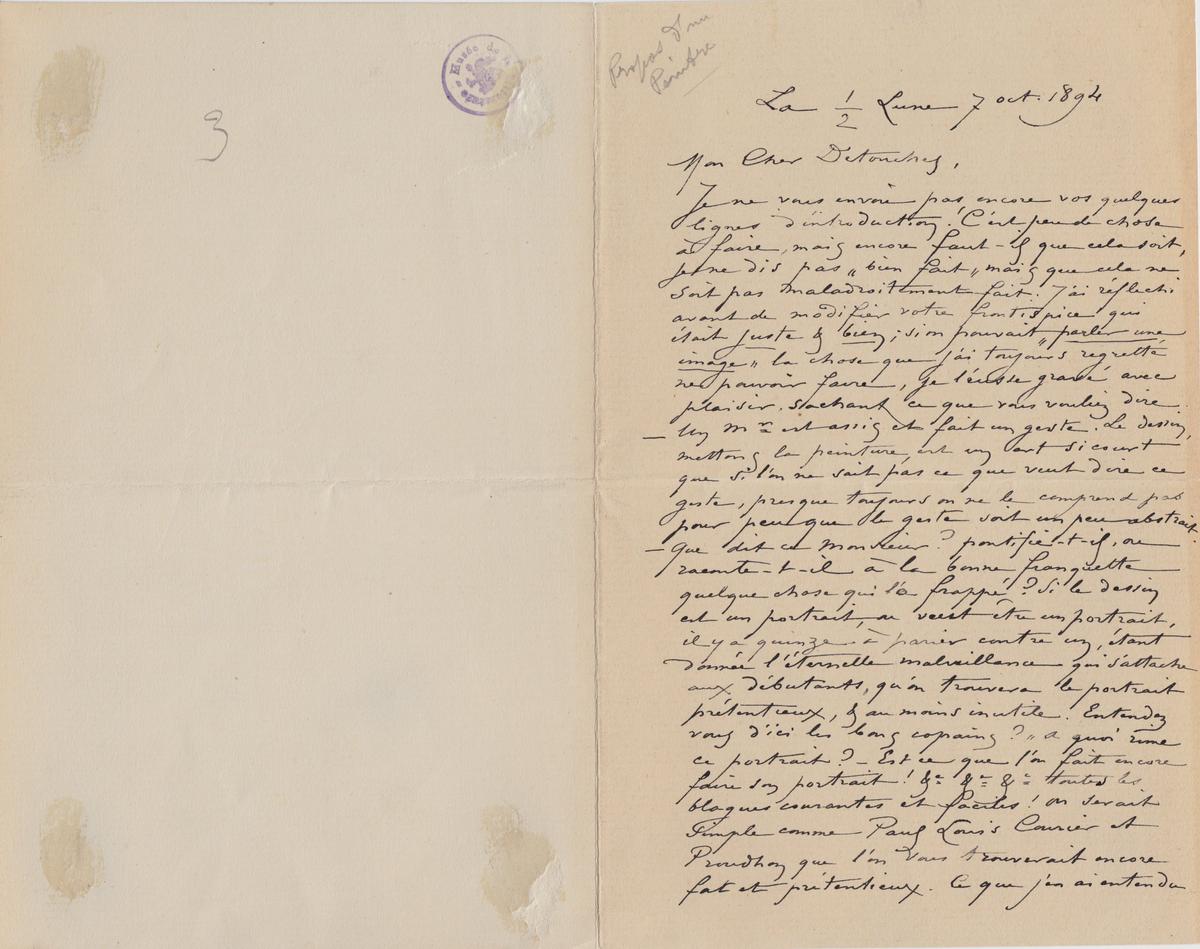 3
Musée de la
Propos d'un
Peintre
La 1/2 Lune 7 oct. 1894
Mon Cher Detouches,
Je ne vous envoie pas encore vos quelques
lignes d'introduction! C'est peu de chose
à faire, mais encore faut-il que cela soit,
je ne dis pas „bien fait„ mais que cela ne
soit pas maladroitement fait. J'ai réfléchi
avant de modifier votre frontispice qui
était juste & bien; si on pouvait „parler une
image„ la chose que j'ai toujours regretté
ne pouvoir faire, je l'eusse gravé avec
plaisir, sachant ce que vous vouliez dire.
— Un Mr est assis et fait un geste. Le dessin,
mettons la peinture, est un art si court
que si l'on ne sait pas ce que veut dire ce
geste, presque toujours on ne le comprend pas
pour peu que le geste soit un peu abstrait.
— Que dit ce Monsieur? pontifie-t-il, ou
raconte-t-il à la bonne franquette
quelque chose qui l'a frappé? Si le dessin
est un portrait, ou veut être un portrait,
il y a quinze à parier contre un, étant
donnée l'éternelle malveillance qui s'attache
aux débutants, qu'on trouvera le portrait
prétentieux, & au moins inutile. Entendez
vous d'ici les bons copains? „a quoi rime
ce portrait? — Est ce que l'on fait encore
faire son portrait! &a &a &a toutes les
blagues courantes et faciles! on serait
simple comme Paul Louis Courier et
Proudhon que l'on vous trouverait encore
fat et prétentieux. Ce que j'en ai entendu